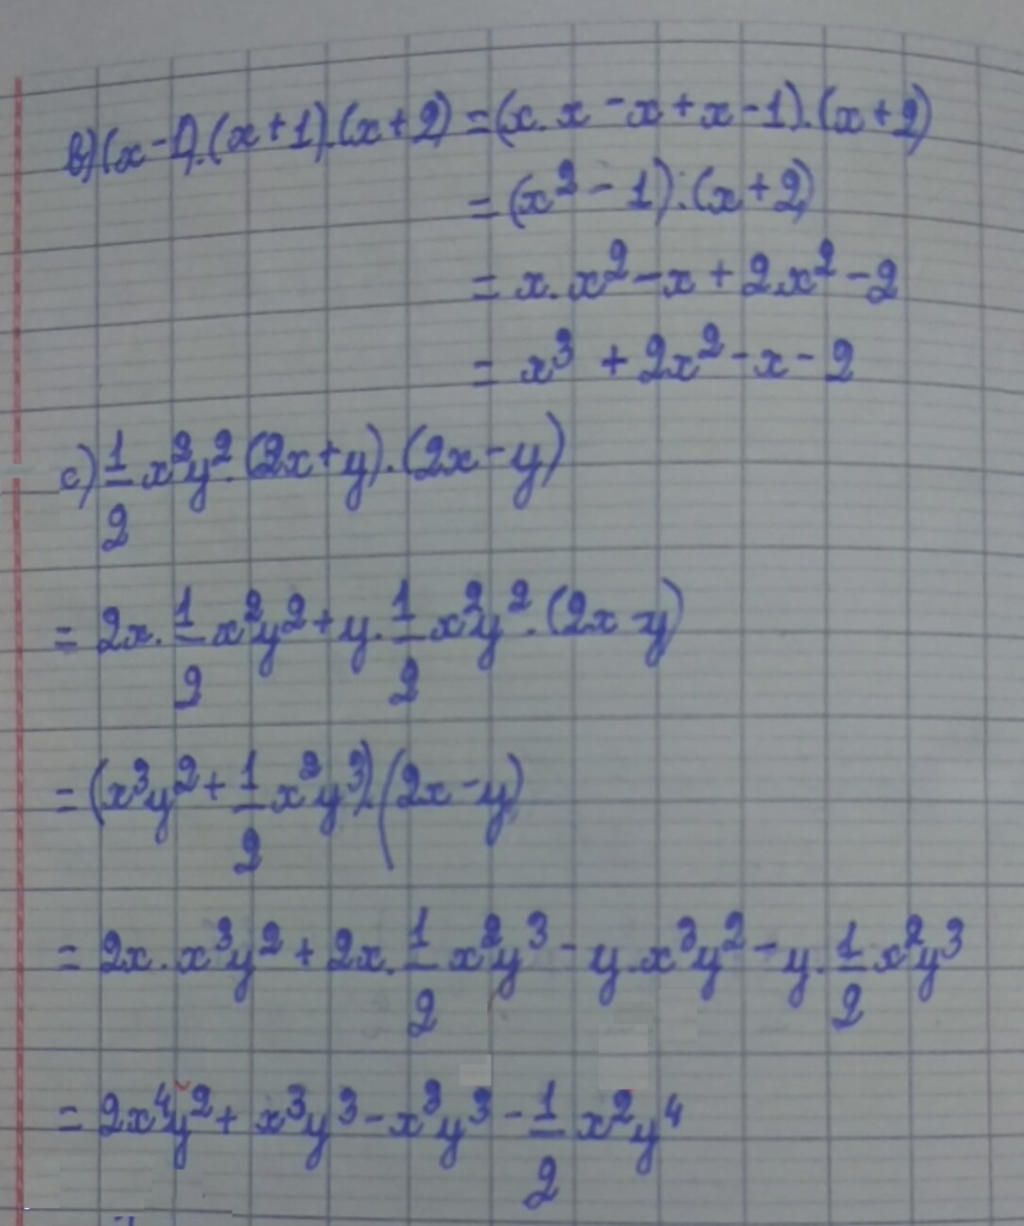 b) (x-1).(x+1).(x+2) = (x.x - x + x - 1).(x+2)
= (x² - 1).(x+2)
= x.x² - x + 2x² - 2
= x³ + 2x² - x - 2
c) 1/2 x²y².(2x+y).(2x-y)
= 2x.1/2 x²y² + y.1/2 x²y².(2x-y)
= (x³y² + 1/2 x²y³).(2x-y)
= 2x.x³y² + 2x.1/2 x²y³ - y.x³y² - y.1/2 x²y³
= 2x⁴y² + x³y³ - x³y³ - 1/2 x²y⁴